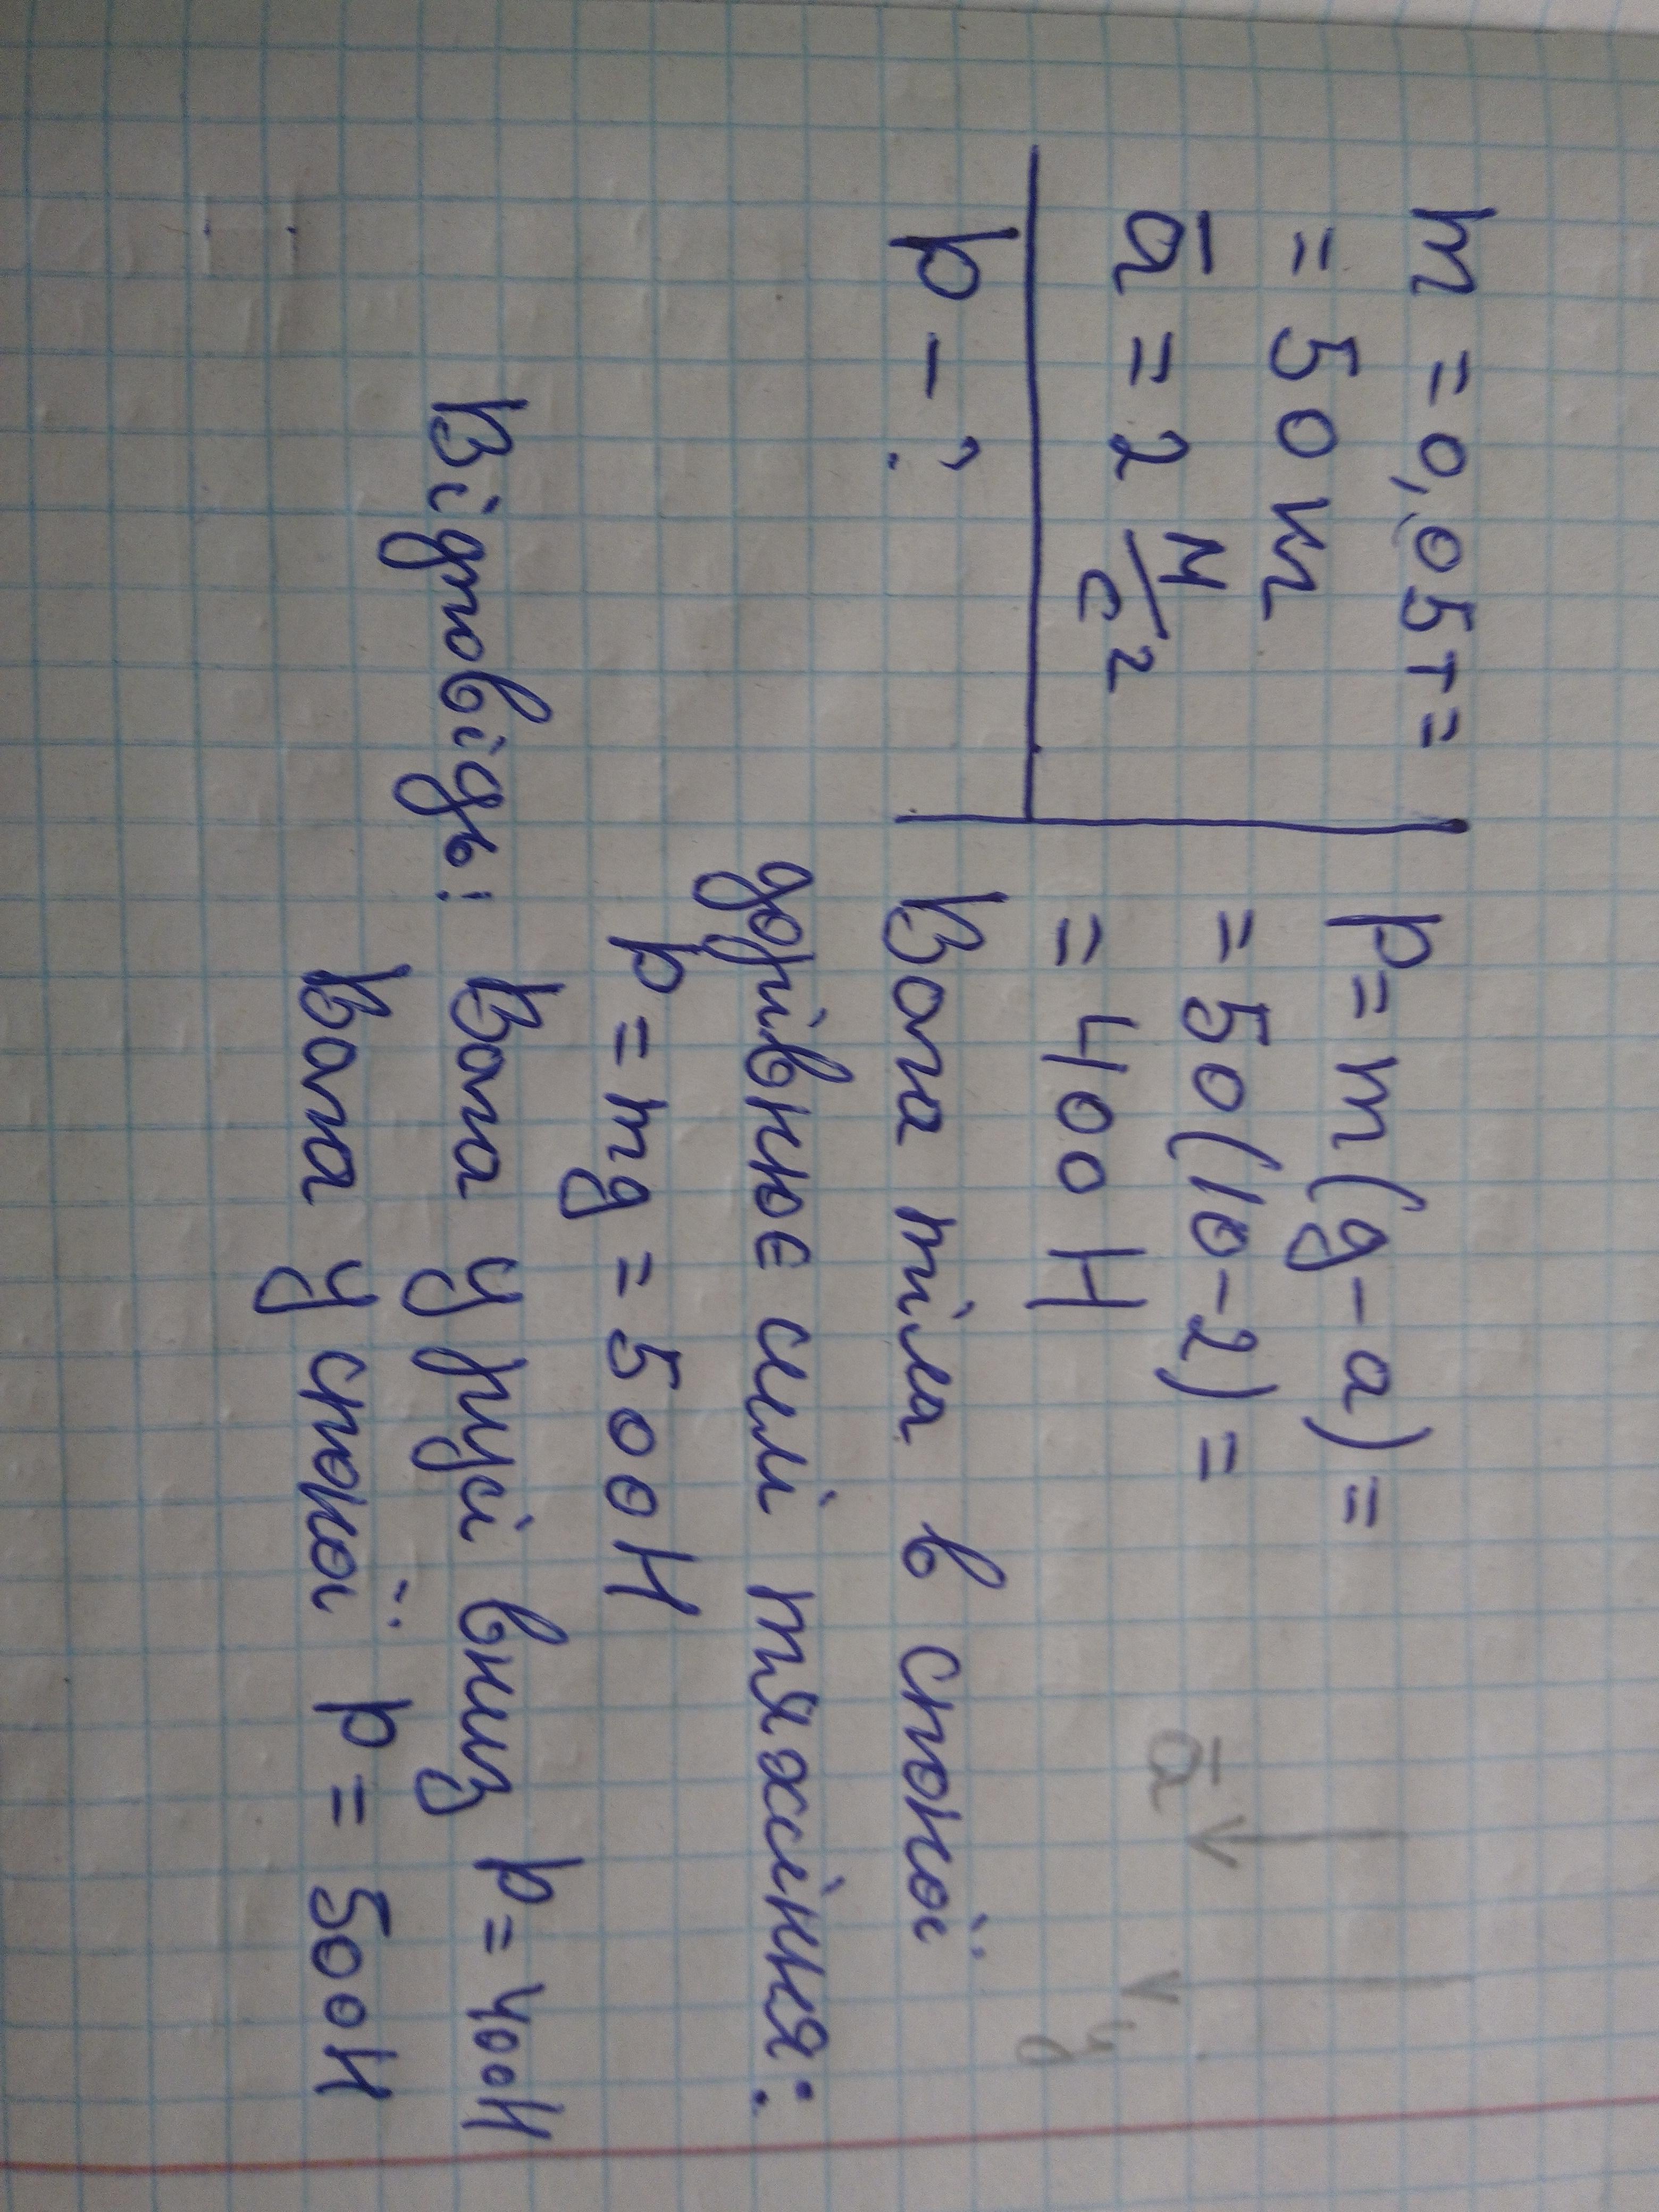 m = 0,05т =
= 50 кг
a̅ = 2 м/с²
p - ?
p = m (g - a) =
= 50 (10 - 2) =
= 400 Н
Вага тіла в спокої
дорівнює силі тяжіння:
p = mg = 500Н
Відповідь: Вага у русі вниз p = 400Н
Вага у спокої p = 500Н
a̅
y